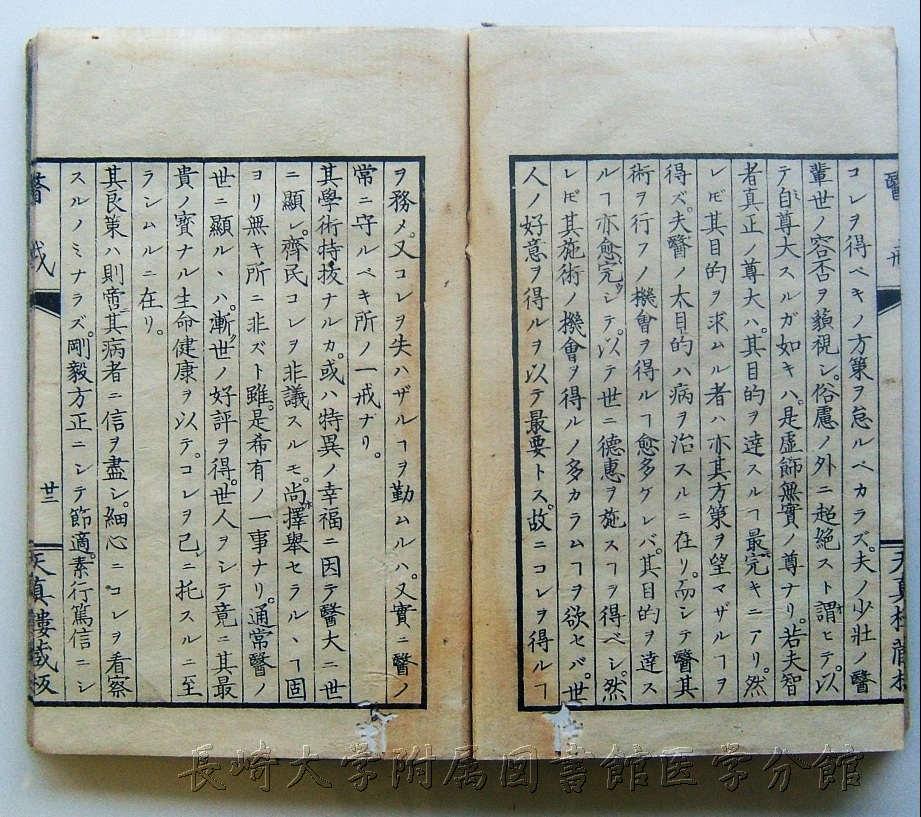 醫戒
コレヲ得ベキノ方策ヲ怠ルベカラズ。夫ノ少壯ノ醫
輩世ノ容否ヲ藐視シ。俗慮ノ外ニ超絶スト謂ヒテ。以
テ自尊大スルガ如キハ。是虛飾無實ノ尊ナリ。若夫智
者真正ノ尊大ハ。其目的ヲ達スルヿ最完キニアリ。然
レ𪜈其目的ヲ求ムル者ハ亦其方策ヲ望マザルヿヲ
得ズ。夫醫ノ大目的ハ病ヲ治スルニ在リ。而シテ醫其
術ヲ行フノ機會ヲ得ルヿ愈多ケレバ。其目的ヲ達ス
ルヿ亦愈完シ。以テ世ニ德惠ヲ施スヿヲ得ベシ。然
レ𪜈其施術ノ機會ヲ得ルノ多カラムヿヲ欲セバ。世
人ノ好意ヲ得ルヲ以テ最要トス。故ニコレヲ得ルヿ
天真樓藏板
ヲ務メ。又コレヲ失ハザルヿヲ勤ムルハ。又實ニ醫ノ
常ニ守ルベキ所ノ一戒ナリ。
其學術特拔ナルカ。或ハ特異ノ幸福ニ因テ醫大ニ世
ニ顯レ。齊民コレヲ非議スルモ。尚擇擧セラルヽヿ固
ヨリ無キ所ニ非ズト雖。是希有ノ一事ナリ。通常醫ノ
世ニ顯ルヽハ。漸世ノ好評ヲ得。世人ヲシテ竟ニ其最
貴ノ寶ナル生命健康ヲ以テ。コレヲ己ニ托スルニ至
ラシムルニ在リ。
其良策ハ則啻ニ其病者ニ信ヲ盡シ。細心ニコレヲ看察
スルノミナラズ。剛毅方正ニシテ節適。素行篤信ニシ
醫戒
廿三
天真樓藏板
長崎大学附属図書館医学分館